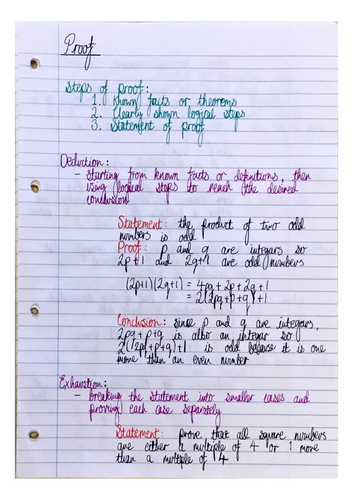 Proof
Steps of proof:
1. Known facts or theorems
2. Clearly shown logical steps
3. Statement of proof
Deduction:
- Starting from known facts or definitions, then
using logical steps to reach the desired
conclusion
Statement: the product of two odd
numbers is odd
Proof: p and q are integers so
2p+1 and 2q+1 are odd numbers
(2p+1)(2q+1) = 4pq + 2p + 2q + 1
= 2(2pq+p+q)+1
Conclusion: since p and q are integers,
2pq+p+q is also an integer so
2(2pq+p+q)+1 is odd because it is one
more than an even number
Exhaustion:
- Breaking the statement into smaller cases and
proving each case separately
Statement: prove that all square numbers
are either a multiple of 4 or 1 more
than a multiple of 4